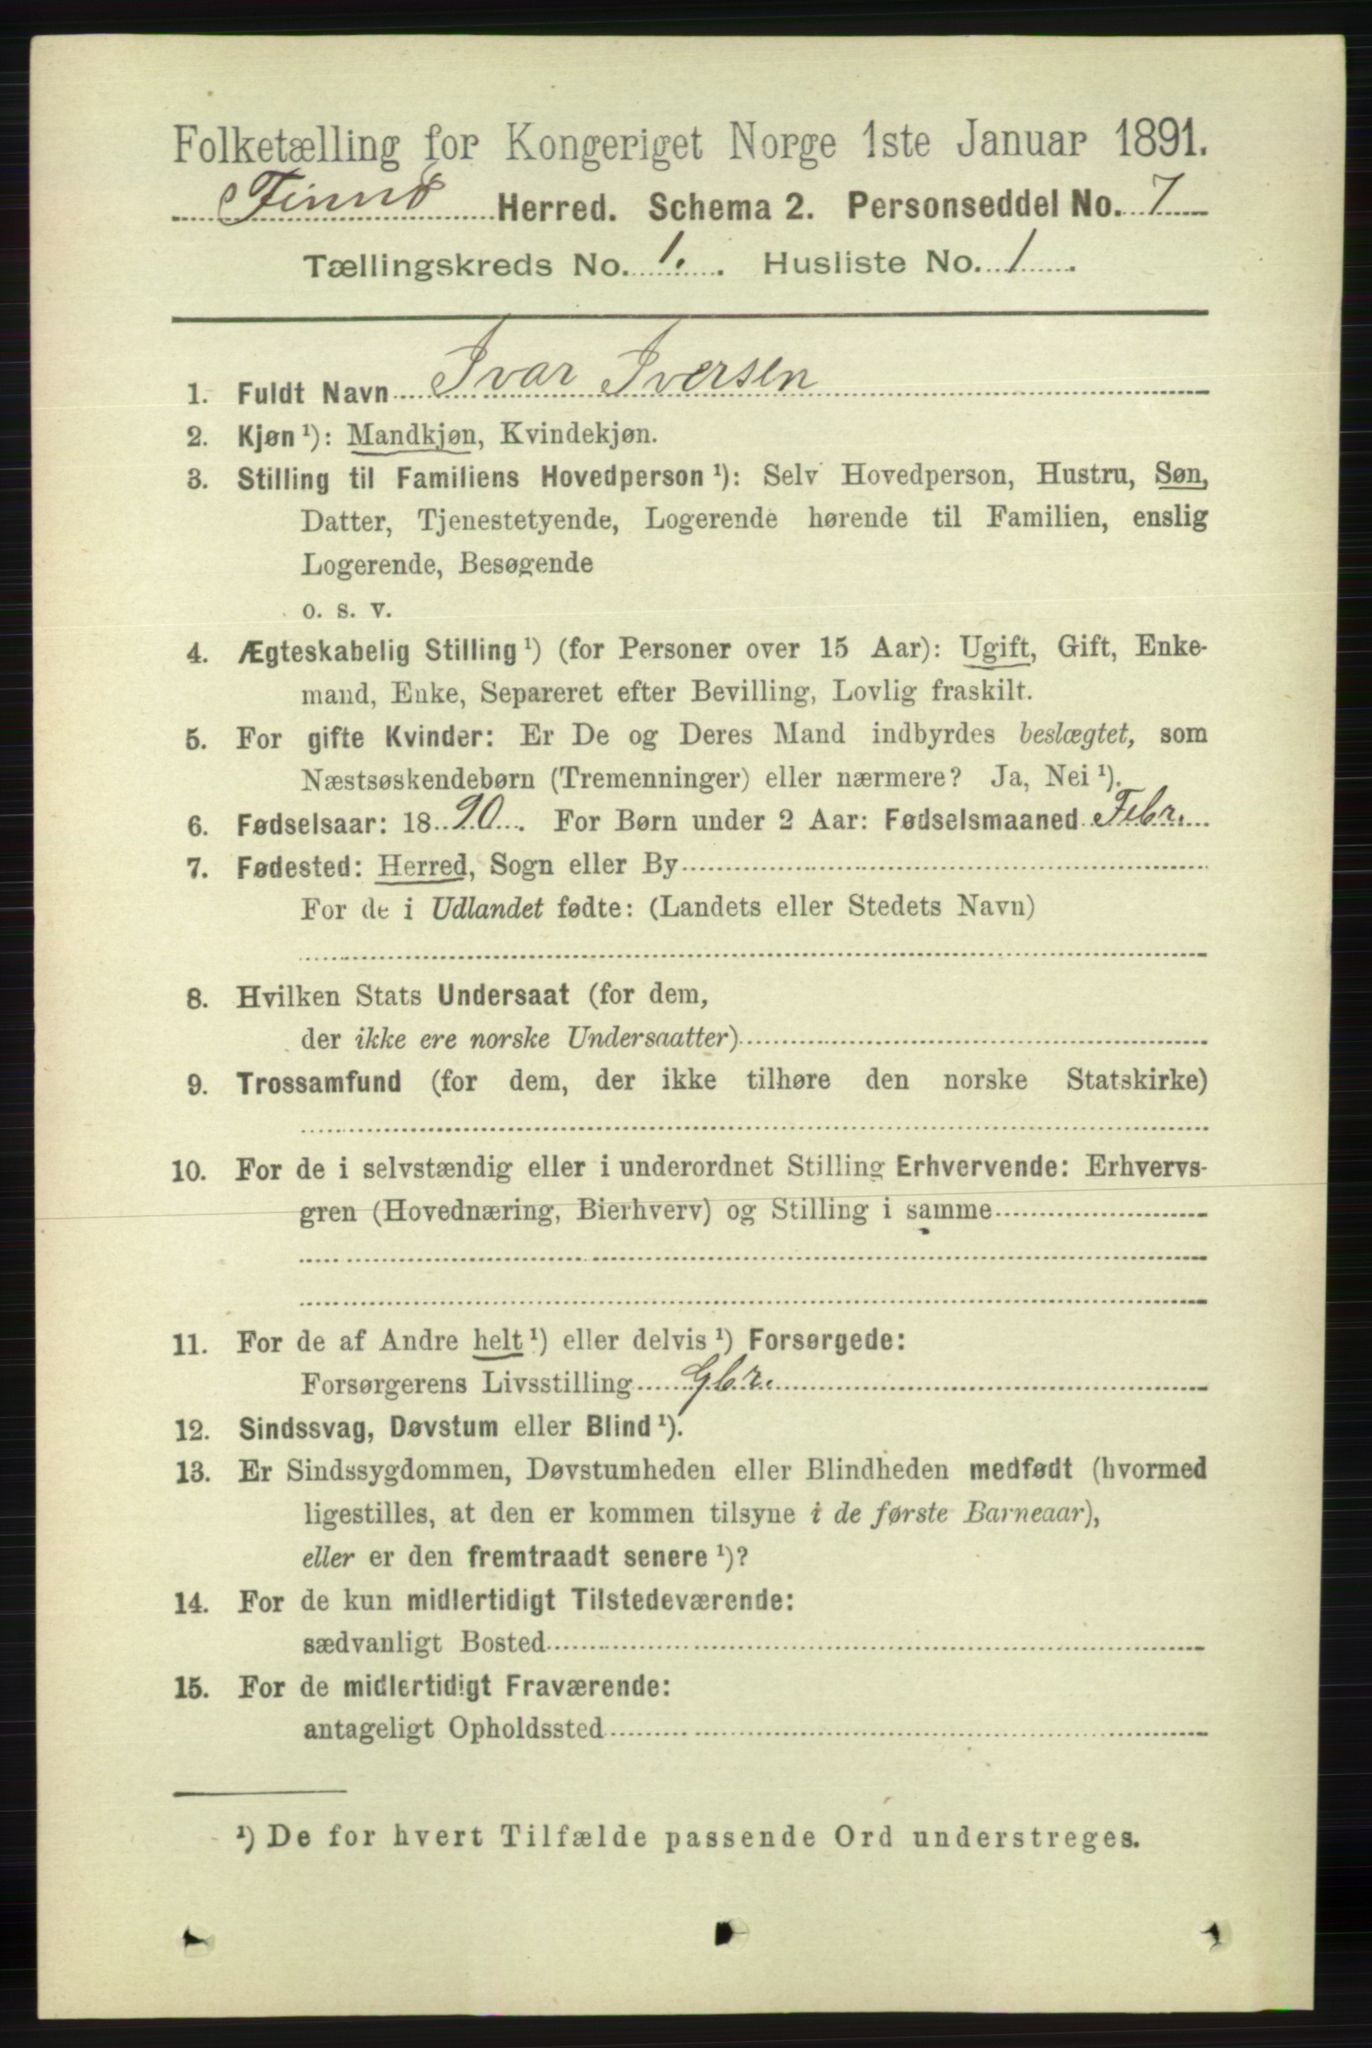 Folketælling for Kongeriget Norge 1ste Januar 1891.
Finnø Herred. Schema 2. Personseddel No. 7
Tællingskreds No. 1. Husliste No. 1
1. Fuldt Navn Ivar Iversen
2. Kjøn ¹): Mandkjøn, Kvindekjøn.
3. Stilling til Familiens Hovedperson ¹): Selv Hovedperson, Hustru, Søn,
Datter, Tjenestetyende, Logerende hørende til Familien, enslig
Logerende, Besøgende
o. s. v.
4. Ægteskabelig Stilling ¹) (for Personer over 15 Aar): Ugift, Gift, Enke-
mand, Enke, Separeret efter Bevilling, Lovlig fraskilt.
5. For gifte Kvinder: Er De og Deres Mand indbyrdes beslægtet, som
Næstsøskendebørn (Tremenninger) eller nærmere? Ja, Nei ¹).
6. Fødselsaar: 1890. For Børn under 2 Aar: Fødselsmaaned Febr.
7. Fødested: Herred, Sogn eller By
For de i Udlandet fødte: (Landets eller Stedets Navn)
8. Hvilken Stats Undersaat (for dem,
der ikke ere norske Undersaatter)
9. Trossamfund (for dem, der ikke tilhøre den norske Statskirke)
10. For de i selvstændig eller i underordnet Stilling Erhvervende: Erhvervs-
gren (Hovednæring, Bierhverv) og Stilling i samme
11. For de af Andre helt ¹) eller delvis ¹) Forsørgede:
Forsørgerens Livsstilling Gbr.
12. Sindssvag, Døvstum eller Blind ¹).
13. Er Sindssygdommen, Døvstumheden eller Blindheden medfødt (hvormed
ligestilles, at den er kommen tilsyne i de første Barneaar),
eller er den fremtraadt senere ¹)?
14. For de kun midlertidigt Tilstedeværende:
sædvanligt Bosted
15. For de midlertidigt Fraværende:
antageligt Opholdssted
¹) De for hvert Tilfælde passende Ord understreges.